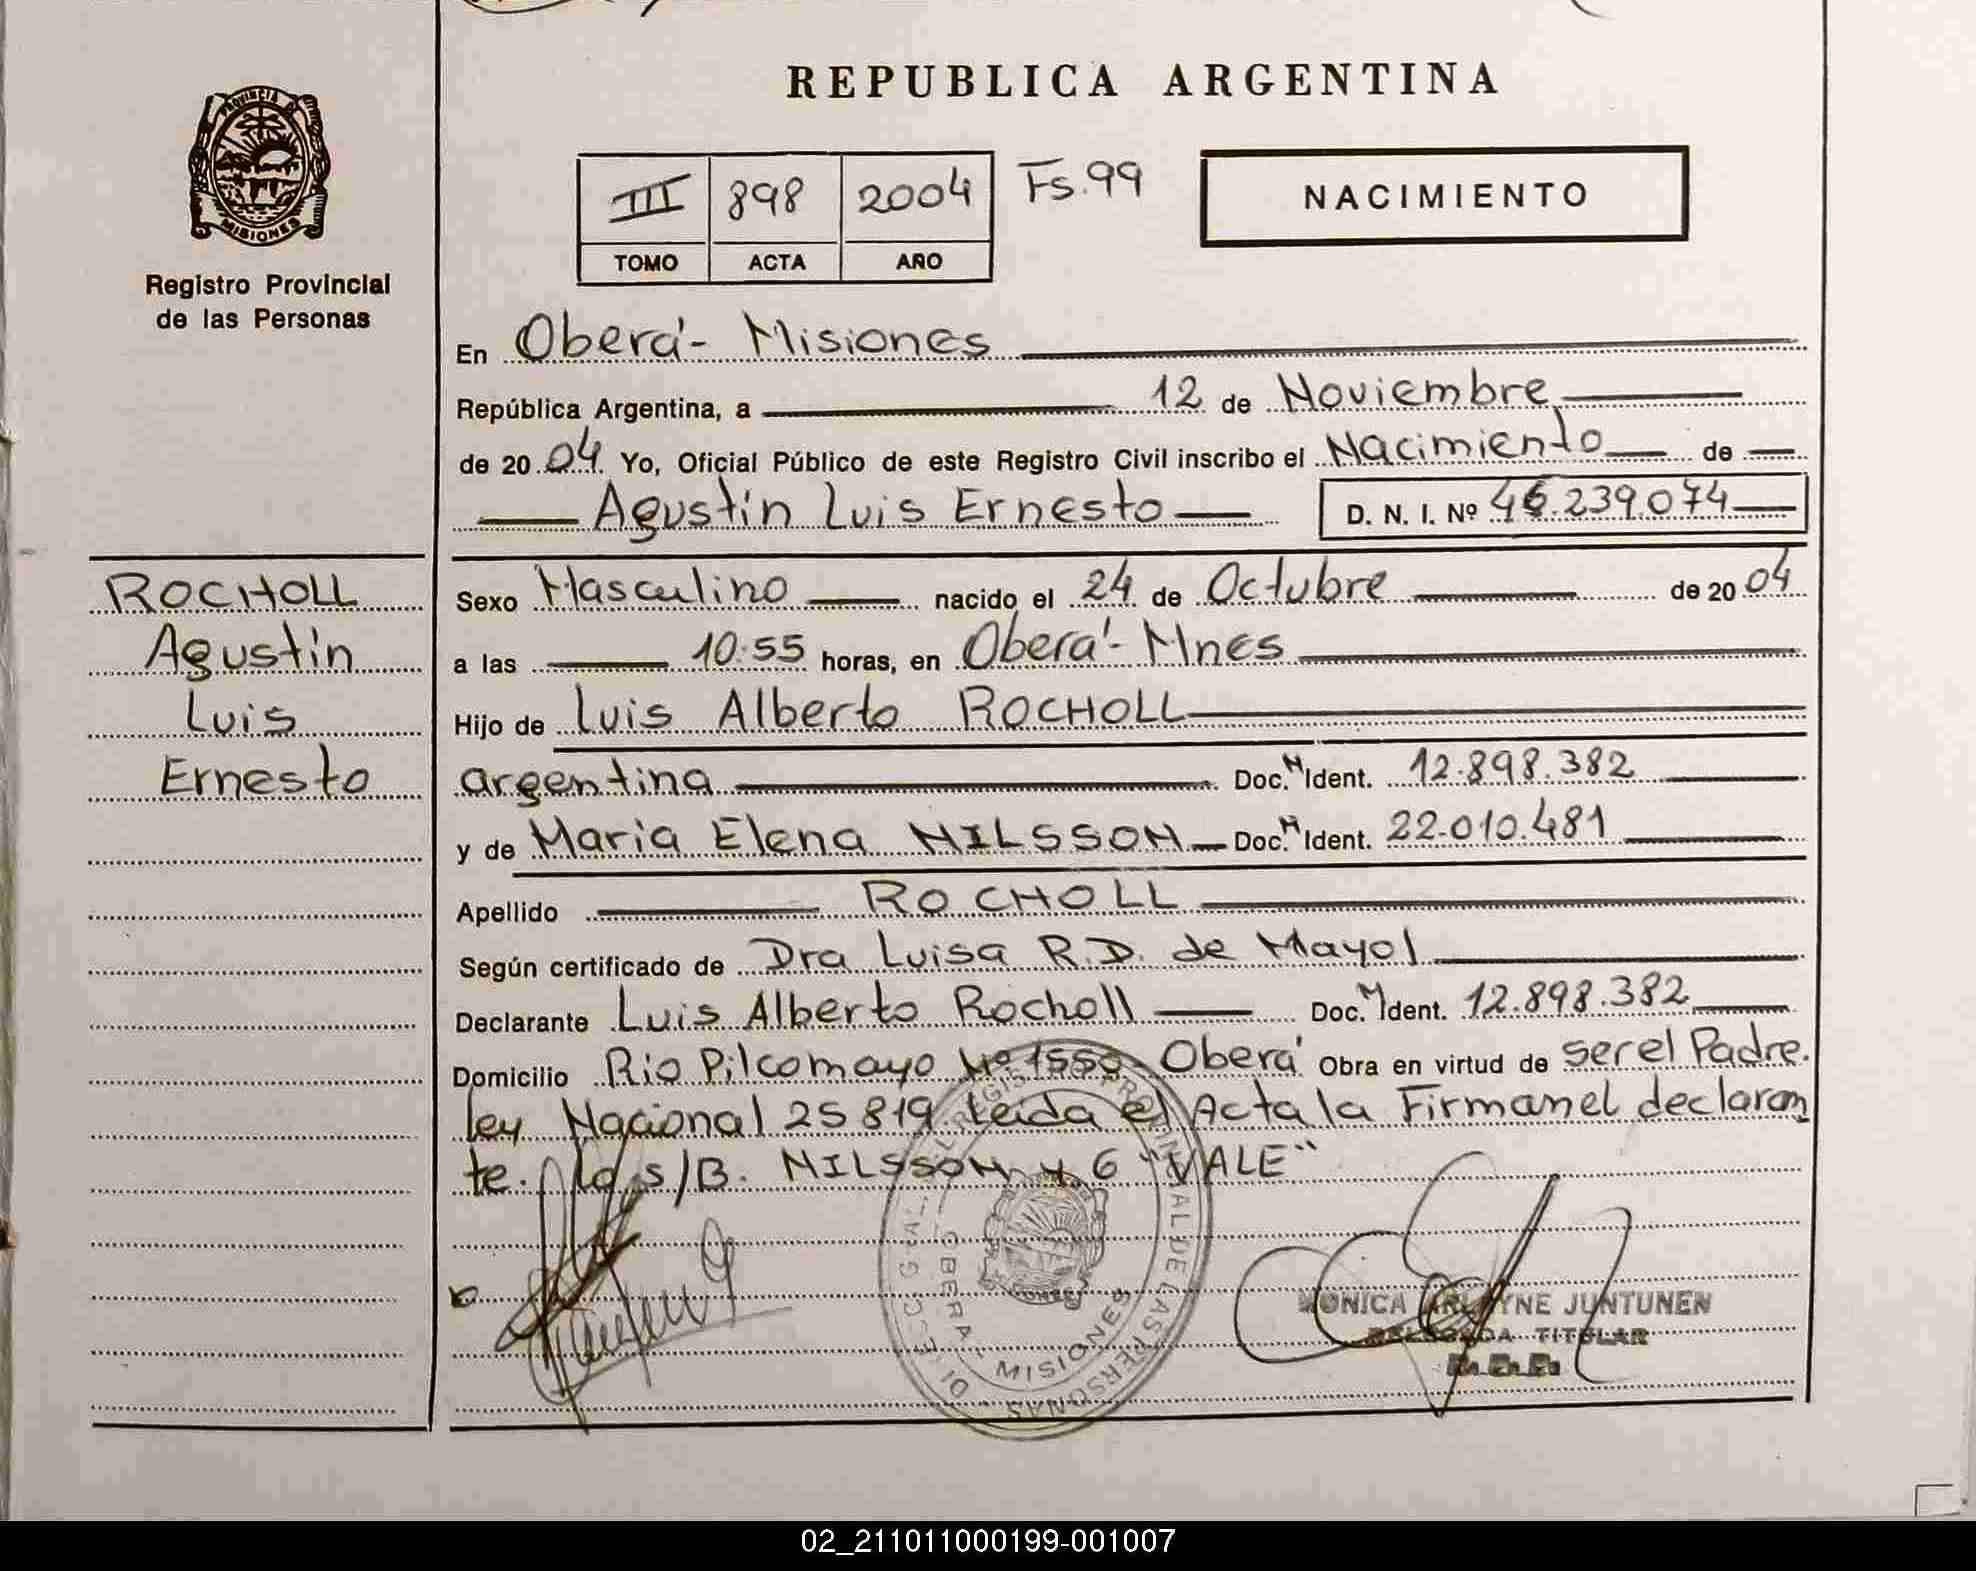 REPUBLICA ARGENTINA
PROVINCIA DE
MISIONES
Registro Provincial
de las Personas
III 898 2004 Fs. 99
TOMO ACTA AÑO
NACIMIENTO
En Oberá - Misiones
República Argentina, a 12 de Noviembre
de 20 04 Yo, Oficial Público de este Registro Civil inscribo el Nacimiento de
Agustín Luis Ernesto D. N. I. Nº 46.239.074
ROCHOLL
Agustín
Luis
Ernesto
Sexo Masculino nacido el 24 de Octubre de 20 04
a las 10:55 horas, en Oberá - Mnes
Hijo de Luis Alberto ROCHOLL
argentina Doc. N Ident. 12.898.382
y de Maria Elena NILSSON Doc. N Ident. 22.010.481
Apellido ROCHOLL
Según certificado de Dra Luisa R.D. de Mayol
Declarante Luis Alberto Rocholl Doc. N Ident. 12.898.382
Domicilio Rio Pilcomayo Nº 1550 Oberá Obra en virtud de ser el Padre.
ley Nacional 25819. Leida el Acta la Firman el declaran
te. lo s/B. NILSSON y 6 "VALE"
REGISTRO PROVINCIAL DE LAS PERSONAS
OBERA MISIONES
MONICA JUNTUNEN
DELEGADA TITULAR
02_211011000199-001007